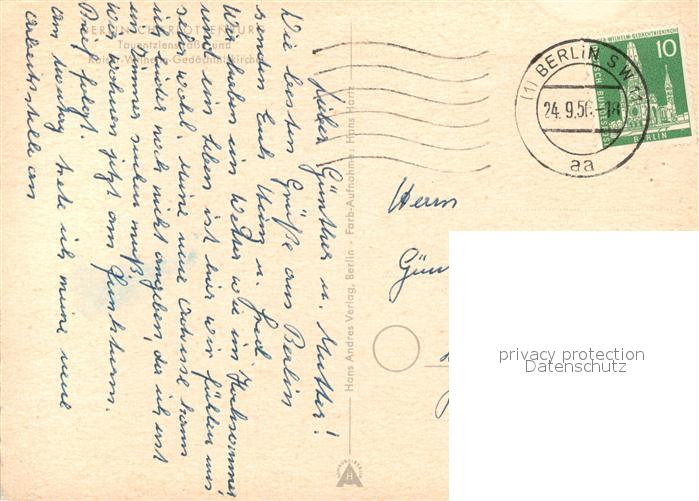 BERLIN CHARLOTTENBURG
Tauentzienstraße und
Kaiser-Wilhelm-Gedächtniskirche
Lieber Günther u. Mutter!
Die besten Grüße aus Berlin
senden Euch Heinz u. Fred.
Wir haben ein Wetter wie im Hochsommer
und ein Leben ist hier wir fühlen uns
sehr wohl. Meine neue Adresse kann
ich leider noch nicht angeben, da ich erst
ein Zimmer suchen muß.
Wir wohnen jetzt am Funkturm.
Brief folgt.
Am Montag trete ich meine neue
Arbeitsstelle an
Hans Andres Verlag, Berlin - Farb-Aufnahme: Hans Hartz
(1) BERLIN SW
24.9.56.-18
aa
KAISER-WILHELM-GEDÄCHTNISKIRCHE
10
DEUTSCHE BUNDESPOST
BERLIN
Herrn
Gün
privacy protection
Datenschutz